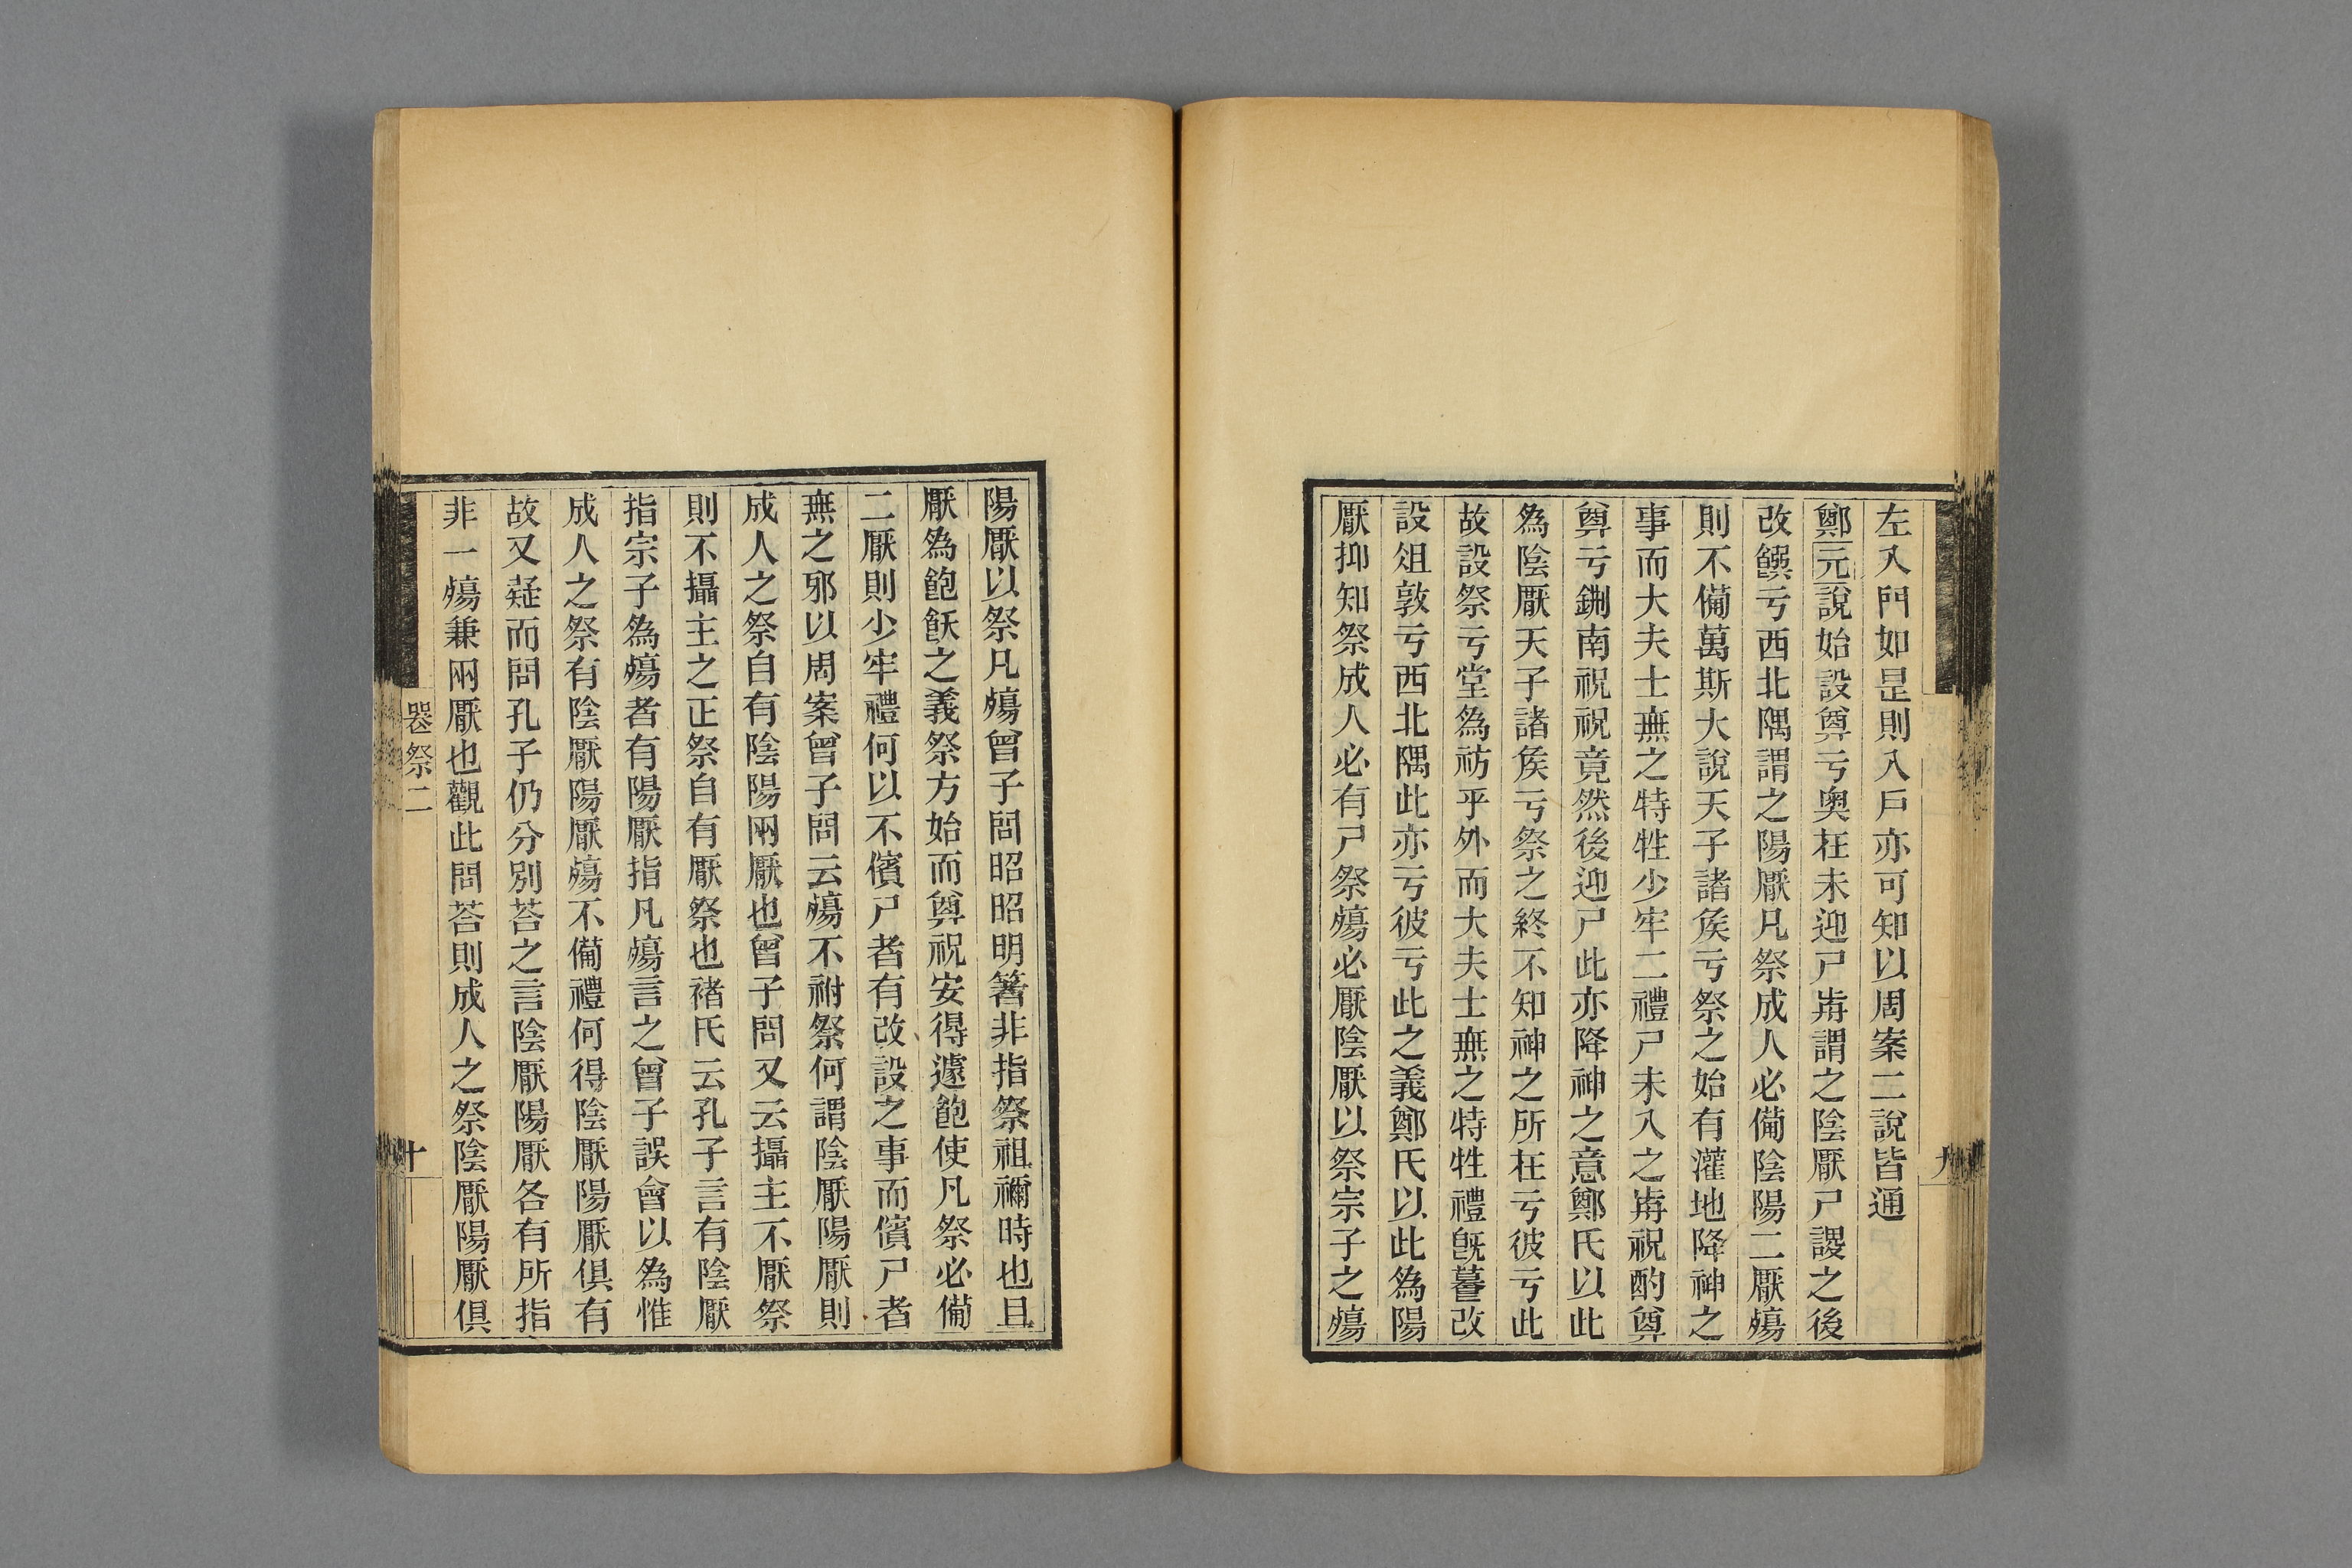 左入門如是則入戶亦可知以周案二說皆通
鄭元說始設奠亏奧在未迎尸歬謂之陰厭尸謖之後
改饌亏西北隅謂之陽厭凡祭成人必備陰陽二厭殤
則不備萬斯大說天子諸矦亏祭之始有灌地降神之
事而大夫士無之特牲少牢二禮尸未入之歬祝酌奠
奠亏鉶南祝祝竟然後迎尸此亦降神之意鄭氏以此
為陰厭天子諸矦亏祭之終不知神之所在亏彼亏此
故設祭亏堂為祊乎外而大夫士無之特牲禮旣暮改
設俎敦亏西北隅此亦亏彼亏此之義鄭氏以此為陽
厭抑知祭成人必有尸祭殤必厭陰厭以祭宗子之殤
陽厭以祭凡殤曾子問昭昭明箸非指祭祖禰時也且
厭為飽飫之義祭方始而奠祝安得遽飽使凡祭必備
二厭則少牢禮何以不儐尸者有改設之事而儐尸者
無之邪以周案曾子問云殤不祔祭何謂陰厭陽厭則
成人之祭自有陰陽兩厭也曾子問又云攝主不厭祭
則不攝主之正祭自有厭祭也褚氏云孔子言有陰厭
指宗子為殤者有陽厭指凡殤言之曾子誤會以為惟
成人之祭有陰厭陽厭殤不備禮何得陰厭陽厭俱有
故又疑而問孔子仍分別荅之言陰厭陽厭各有所指
非一殤兼兩厭也觀此問荅則成人之祭陰厭陽厭俱
祭二
十